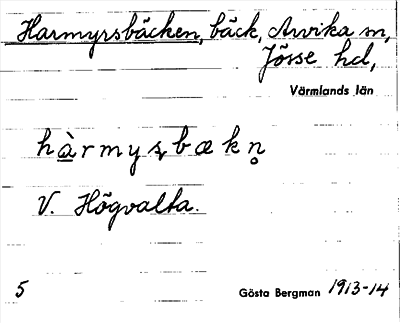 Harmyrsbäcken, bäck, Arvika m,
Jösse hd,
Värmlands län
hàrmyșbækn̥
V. Högvalta.
5 Gösta Bergman 1913-14